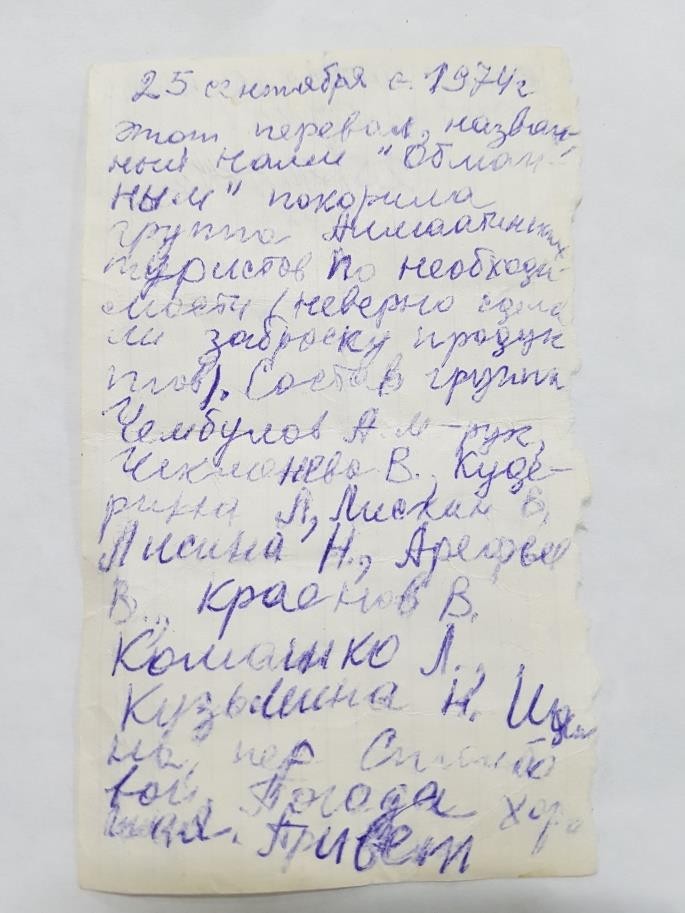 25 сентября с. 1974г
этот перевал, назван-
ный нами "Обман-
ным" покорила
группа Алмаатинских
туристов по необходи
мости (неверно сдела
ли заброску продук
тов). Состав группы
Чембулов А.М-рук,
В., Куде-
рина Л, Лискин В,
Лисина Н., Арефьев
В., Краснов В.
Команко Л.,
Кузьмина Н. Идем
на пер
вой. Погода хоро
шая. Привет